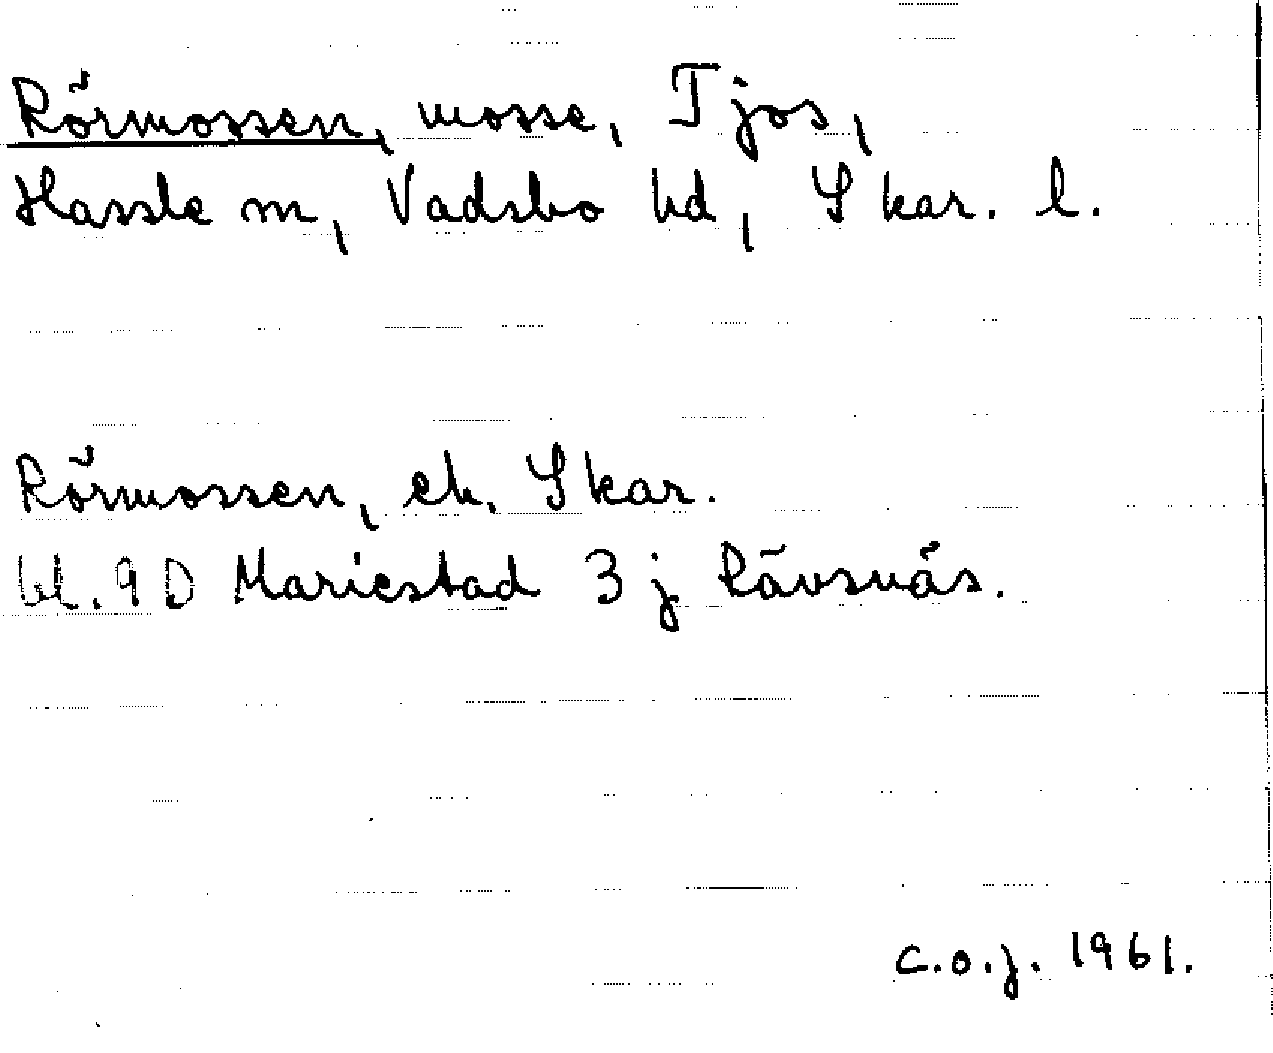 Rörmossen, mosse, Tjos,
Hassle sn, Vadsbo hd, Skar. l.
Rörmossen, ek. Skar.
bl. 9 D Mariestad 3 j Rävsnäs.
C.O.J. 1961.